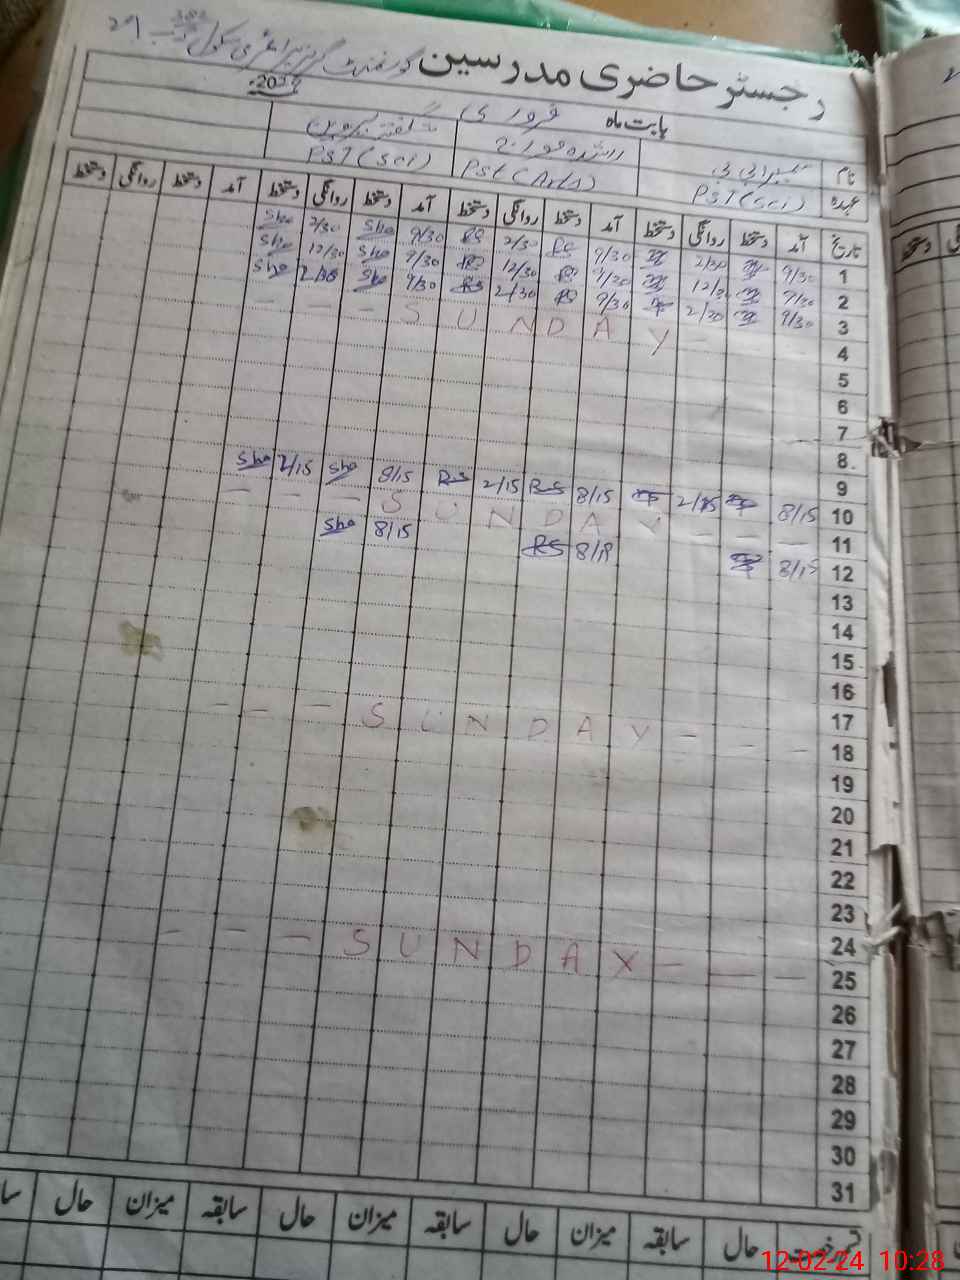 رجسٹر حاضری مدرسین گورنمنٹ گرلز پرائمری سکول
بابت ماہ فروری 2024
نام
عہدہ PST (Sci) PST (Arts) PST (Sci)
تاریخ آمد دستخط روانگی دستخط آمد دستخط روانگی دستخط آمد دستخط روانگی دستخط آمد دستخط روانگی دستخط
1 9/30 2/30 9/30 RS 2/30 RS 9/30 Sha 2/30 Sha
2 9/30 12/30 9/30 RS 12/30 RS 9/30 Sha 12/30 Sha
3 9/30 2/30 9/30 RS 2/30 RS 9/30 Sha 2/30 Sha
4 - - - S U N D A Y - - -
5
6
7
8
9
10 8/15 2/15 8/15 RS 2/15 RS 8/15 Sha 2/15 Sha
11 - - - S U N D A Y - - -
12 8/15 8/15 RS 8/15 Sha
13
14
15
16
17
18 - - - S U N D A Y - - -
19
20
21
22
23
24
25 - - - S U N D A Y - - -
26
27
28
29
30
31
قسم رخصت حال سابقہ میزان حال سابقہ میزان حال سابقہ میزان حال
12-02-24 10:28